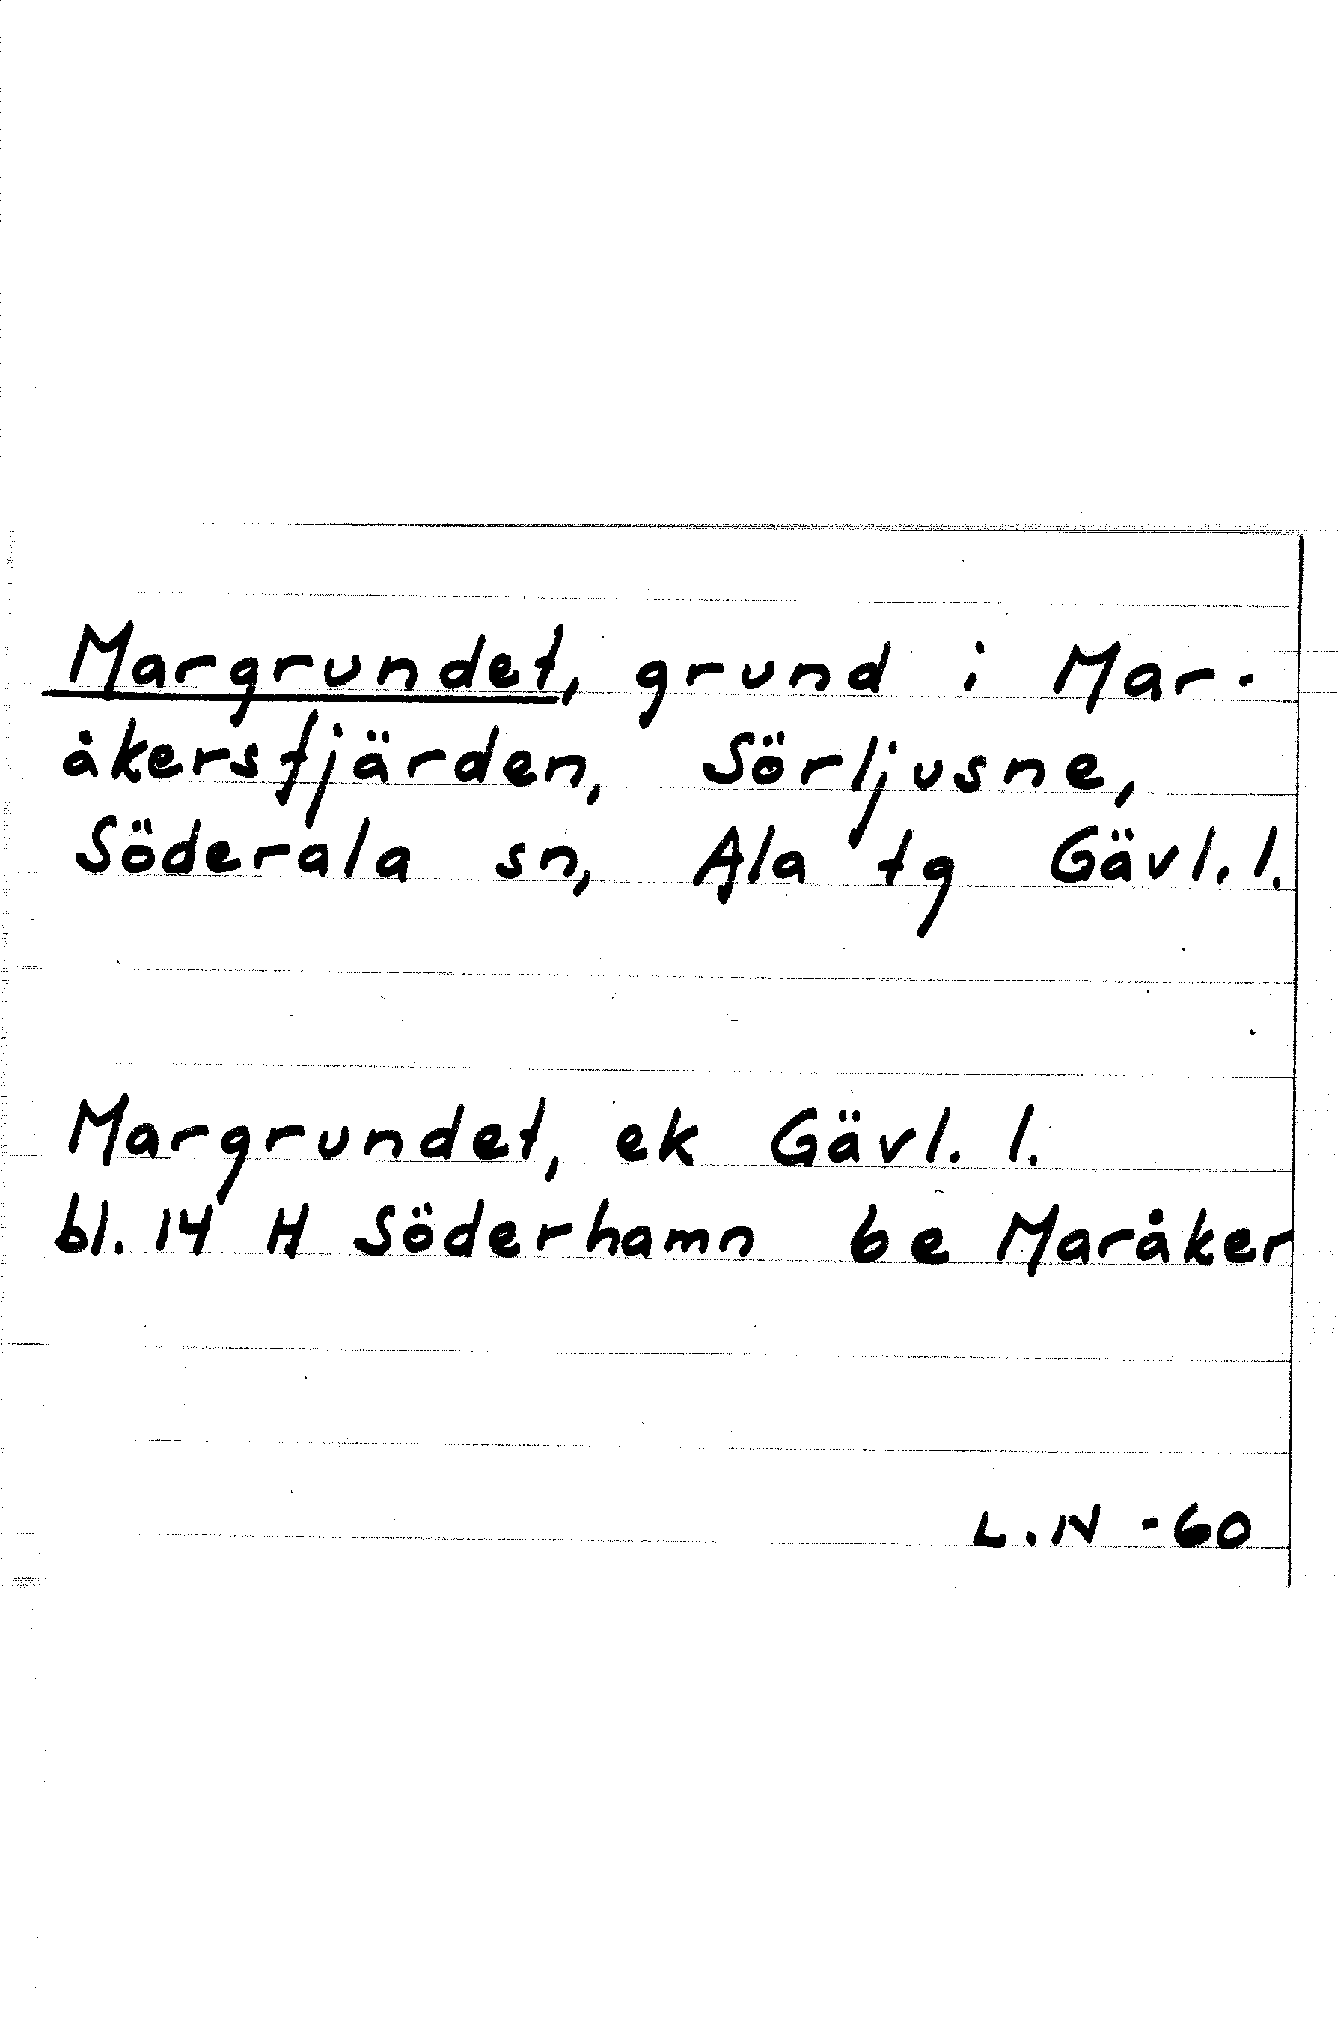 Margrundet, grund i Mar-
åkersfjärden, Sörljusne,
Söderala sn, Ala tg Gävl. l.
Margrundet, ek Gävl. l.
bl. 14 H Söderhamn 6e Maråker
L.N -60